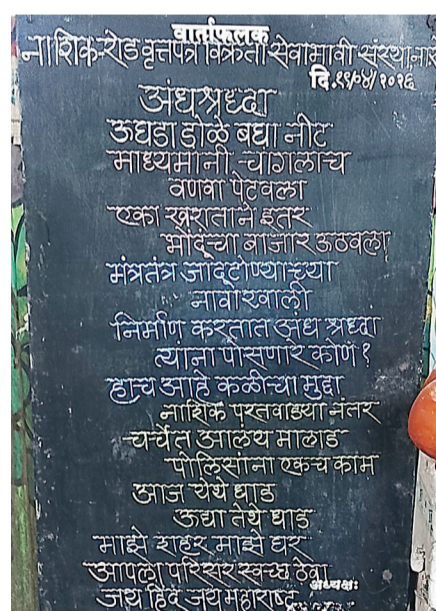 वार्ताफलक
नाशिक-रोड वृत्तपत्र विक्रेता सेवाभावी संस्था
दि.१९/०४/२०२६
अंधश्रध्दा
ऊघडा डोळे बघा नीट
माध्यमानी चागलाच
वणवा पेटवला
एका खराताने इतर
भोंदूंचा बाजार ऊठवला
मंत्रतंत्र जादूटोण्याच्या
नावाखाली
निर्माण करतात अंध श्रध्दा
त्यांना पोसणारे कोण?
हाच आहे कळीच्या मुद्दा
नाशिक परतवाड्या नंतर
चर्चेत आलय मालाड
पोलिसांना एकच काम
आज येथे धाड
ऊद्या तेथे धाड
माझे शहर माझे घर
आपला परिसर स्वच्छ ठेवा
अध्यक्षः
जय हिंद जय महाराष्ट्र